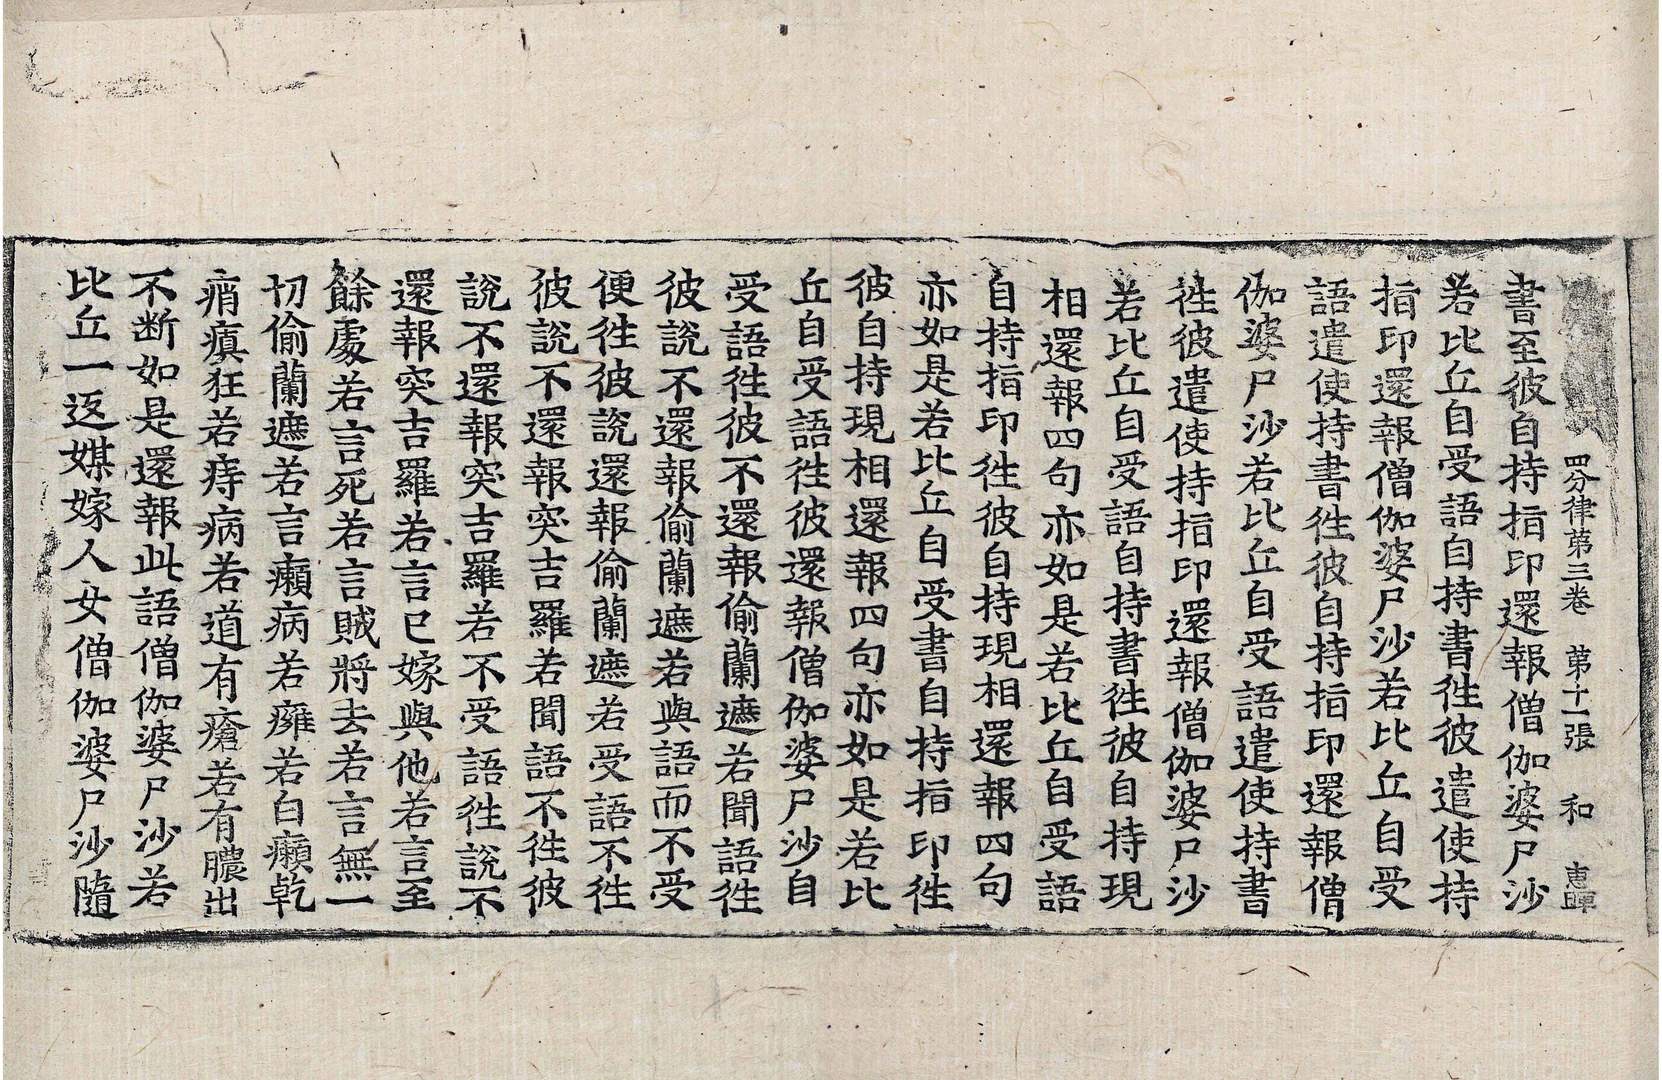 四分律第三卷 第十一張 和 惠暉
書至彼自持指印還報僧伽婆尸沙
若比丘自受語自持書徃彼遣使持
指印還報僧伽婆尸沙若比丘自受
語遣使持書徃彼自持指印還報僧
伽婆尸沙若比丘自受語遣使持書
徃彼遣使持指印還報僧伽婆尸沙
若比丘自受語自持書徃彼自持現
相還報四句亦如是若比丘自受語
自持指印徃彼自持現相還報四句
亦如是若比丘自受書自持指印徃
彼自持現相還報四句亦如是若比
丘自受語徃彼還報僧伽婆尸沙自
受語徃彼不還報偷蘭遮若聞語徃
彼說不還報偷蘭遮若與語而不受
便徃彼說還報偷蘭遮若受語不徃
彼說不還報突吉羅若聞語不徃彼
說不還報突吉羅若不受語徃說不
還報突吉羅若言已嫁與他若言至
餘處若言死若言賊將去若言無一
切偷蘭遮若言癩病若癰若白癩乾
痟瘨狂若痔病若道有瘡若有膿出
不断如是還報此語僧伽婆尸沙若
比丘一返媒嫁人女僧伽婆尸沙隨